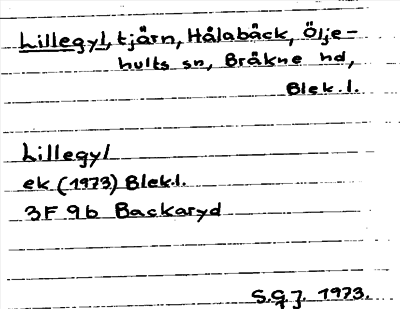 Lillegyl, tjärn, Hålabäck, Ölje-
hults sn, Bräkne hd,
Blek.l.
Lillegyl
ek (1973) Blek.l.
3F 9b Backaryd
S.G.J. 1973.